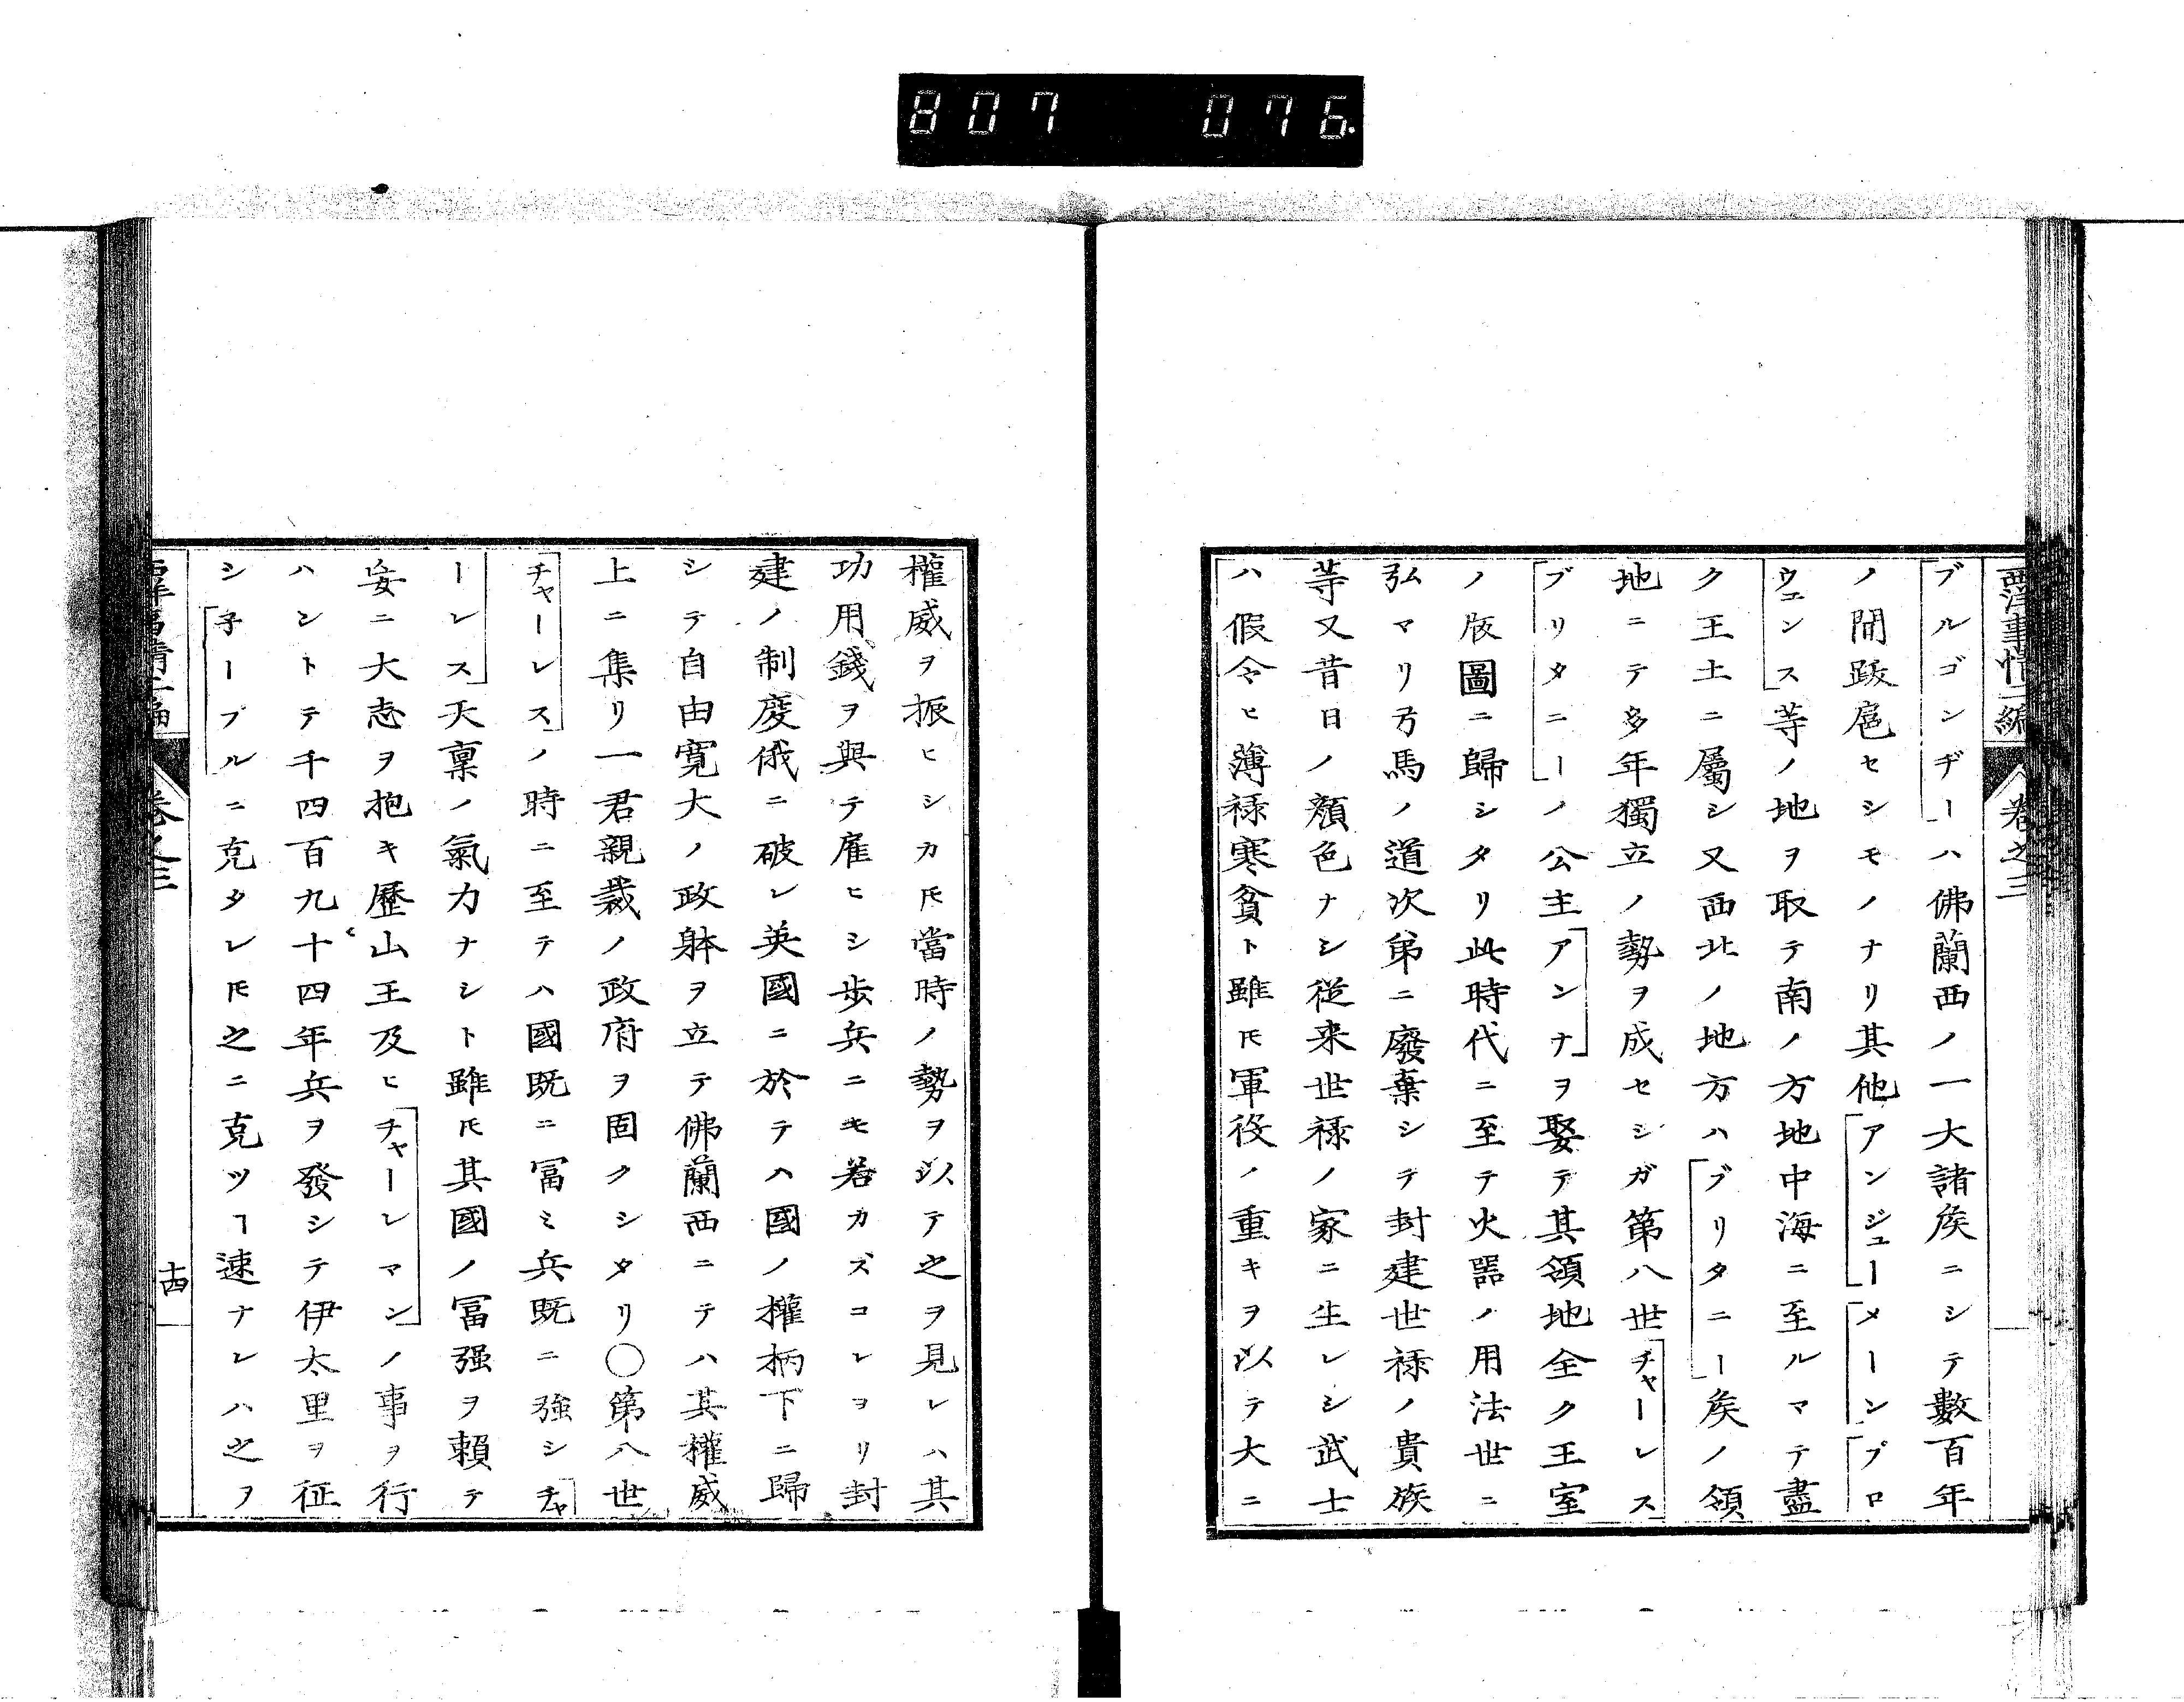 807 076.
西洋事情二編 卷之三
「ブルゴンヂー」ハ佛蘭西ノ一大諸矦ニシテ數百年
ノ間跋扈セシモノナリ其他「アンジュー」「メーン」「プロ
ウェンス」等ノ地ヲ取テ南ノ方地中海ニ至ルマテ盡
ク王土ニ屬シ又西北ノ地方ハ「ブリタニー」矦ノ領
地ニテ多年獨立ノ勢ヲ成セシガ第八世「チャーレス」
「ブリタニー」ノ公主「アンナ」ヲ娶テ其領地全ク王室
ノ版圖ニ歸シタリ此時代ニ至テ火器ノ用法世ニ
弘マリ弓馬ノ道次第ニ廢棄シテ封建世祿ノ貴族
等又昔日ノ顏色ナシ従来世祿ノ家ニ生レシ武士
ハ假令ヒ薄祿寒貧ト雖𪜈軍役ノ重キヲ以テ大ニ
權威ヲ振ヒシカ𪜈當時ノ勢ヲ以テ之ヲ見レハ其
功用錢ヲ與テ雇ヒシ歩兵ニモ若カズコレヨリ封
建ノ制度俄ニ破レ英國ニ於テハ國ノ權柄下ニ歸
シテ自由寛大ノ政躰ヲ立テ佛蘭西ニテハ其權威
上ニ集リ一君親裁ノ政府ヲ固クシタリ〇第八世
「チャーレス」ノ時ニ至テハ國既ニ冨ミ兵既ニ強シ「チャ
ーレス」天稟ノ氣力ナシト雖𪜈其國ノ冨强ヲ頼テ
妄ニ大志ヲ抱キ歷山王及ヒ「チャーレマン」ノ事ヲ行
ハントテ千四百九十四年兵ヲ發シテ伊太里ヲ征
シ「子ープル」ニ克タレ𪜈之ニ克ツヿ速ナレハ之ヲ
西洋事情二編 卷之三 十四